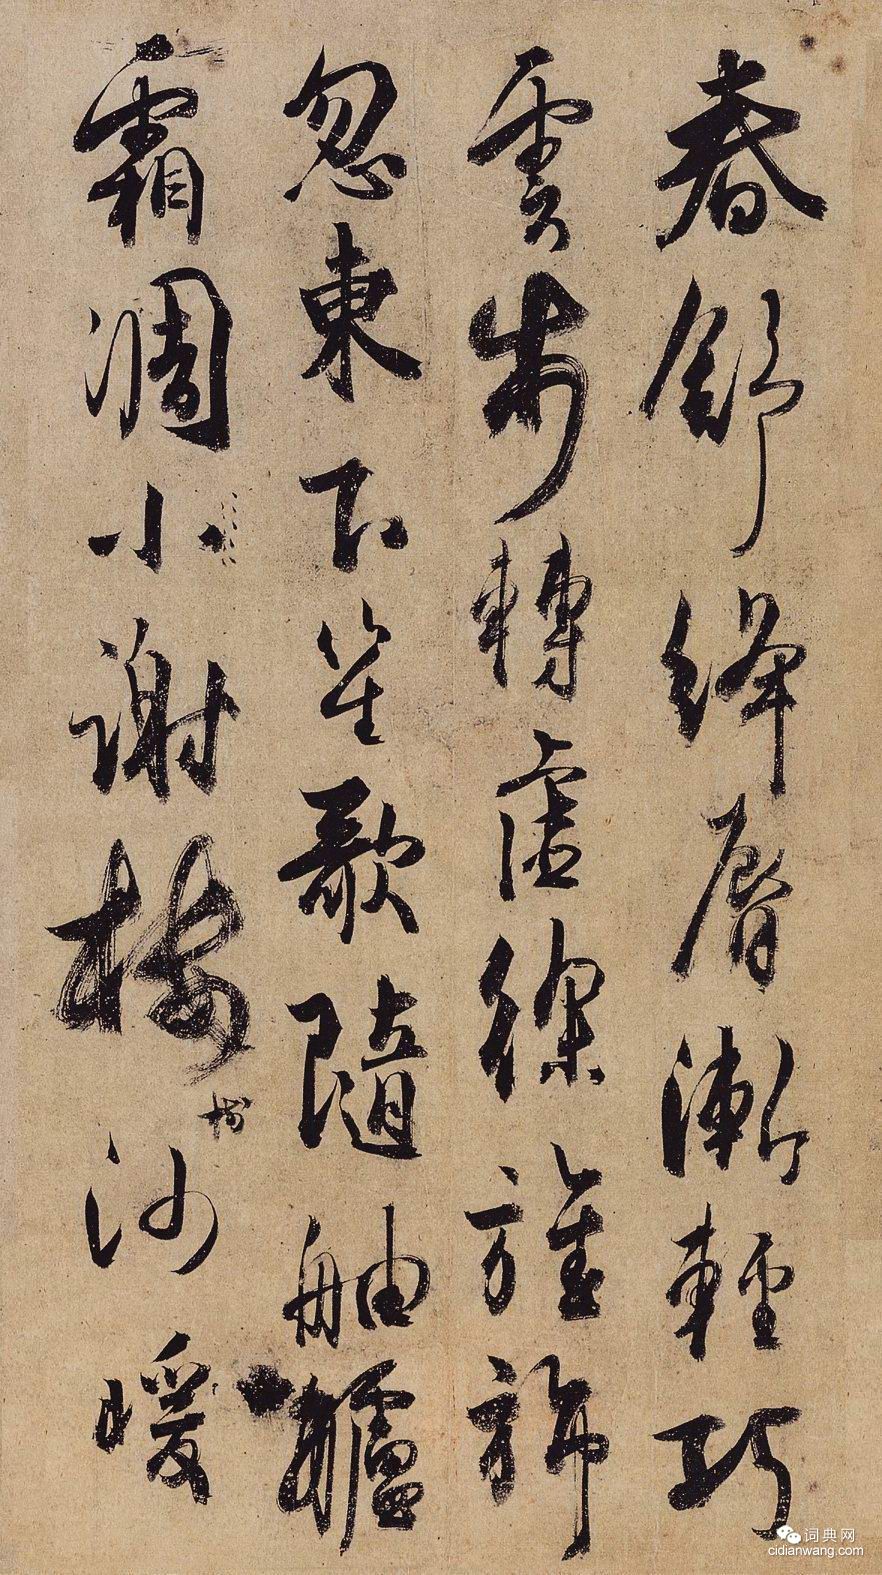 春舒絳脣漸輕巧
雲步轉虛徐旌旆
忽東下笙歌隨舳艫
霜凋小謝樓樹沙暖
词典网
cidianwang.com